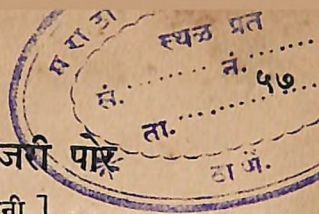 मराठी
स्थळ प्रत
सं. .......... नं. ..........
५७
ता. ....................
ठाणें.
जरी पोर
नी ]